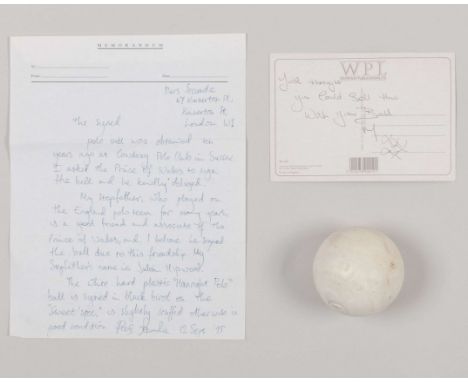 MEMORANDUM
To
From Date
London W1
"The Signed
polo ball was obtained ten
years ago at Cowdray Polo Club in Sussex
I asked the Prince of Wales to sign
the ball and he kindly obliged.
My Stepfather, who played on
the England polo team for many years,
is a good friend and associate of the
Prince of Wales, and I believe he signed
the ball due to this friendship. My
Stepfather's name is Julian Hipwood.
The White hard plastic
ball is signed in black biro on the
"Sweet spot" is slightly scuffed otherwise in
good condition 12 Sept
WPI
you could Sell this
With your ball